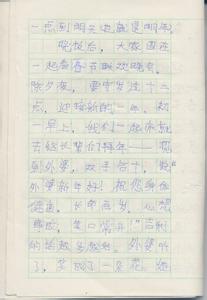 一点到明天也就是明年。
晚饭后，大家围在
一起看春节联欢晚会。
除夕夜，要守岁过十二
点，迎接新的一年。初
一早上，我们一起床就
去给长辈们拜年——
到外婆，双手合十，说“
外婆新年好！祝您身体
健康，长命百岁，心想
事成，笑口常开！”吉利
的话越多越好，外婆听
了，笑成了一朵花，